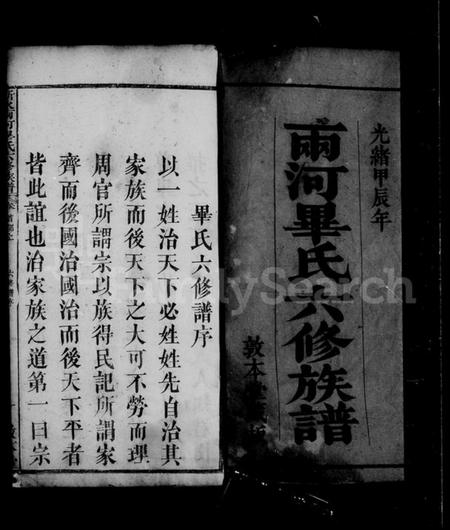 光緒甲辰年
兩河畢氏六修族譜
敦本堂
畢氏六修譜序
以一姓治天下必姓姓先自治其
家族而後天下之大可不勞而理
周官所謂宗以族得民記所謂家
齊而後國治國治而後天下平者
皆此誼也治家族之道第一曰宗
FamilySearch